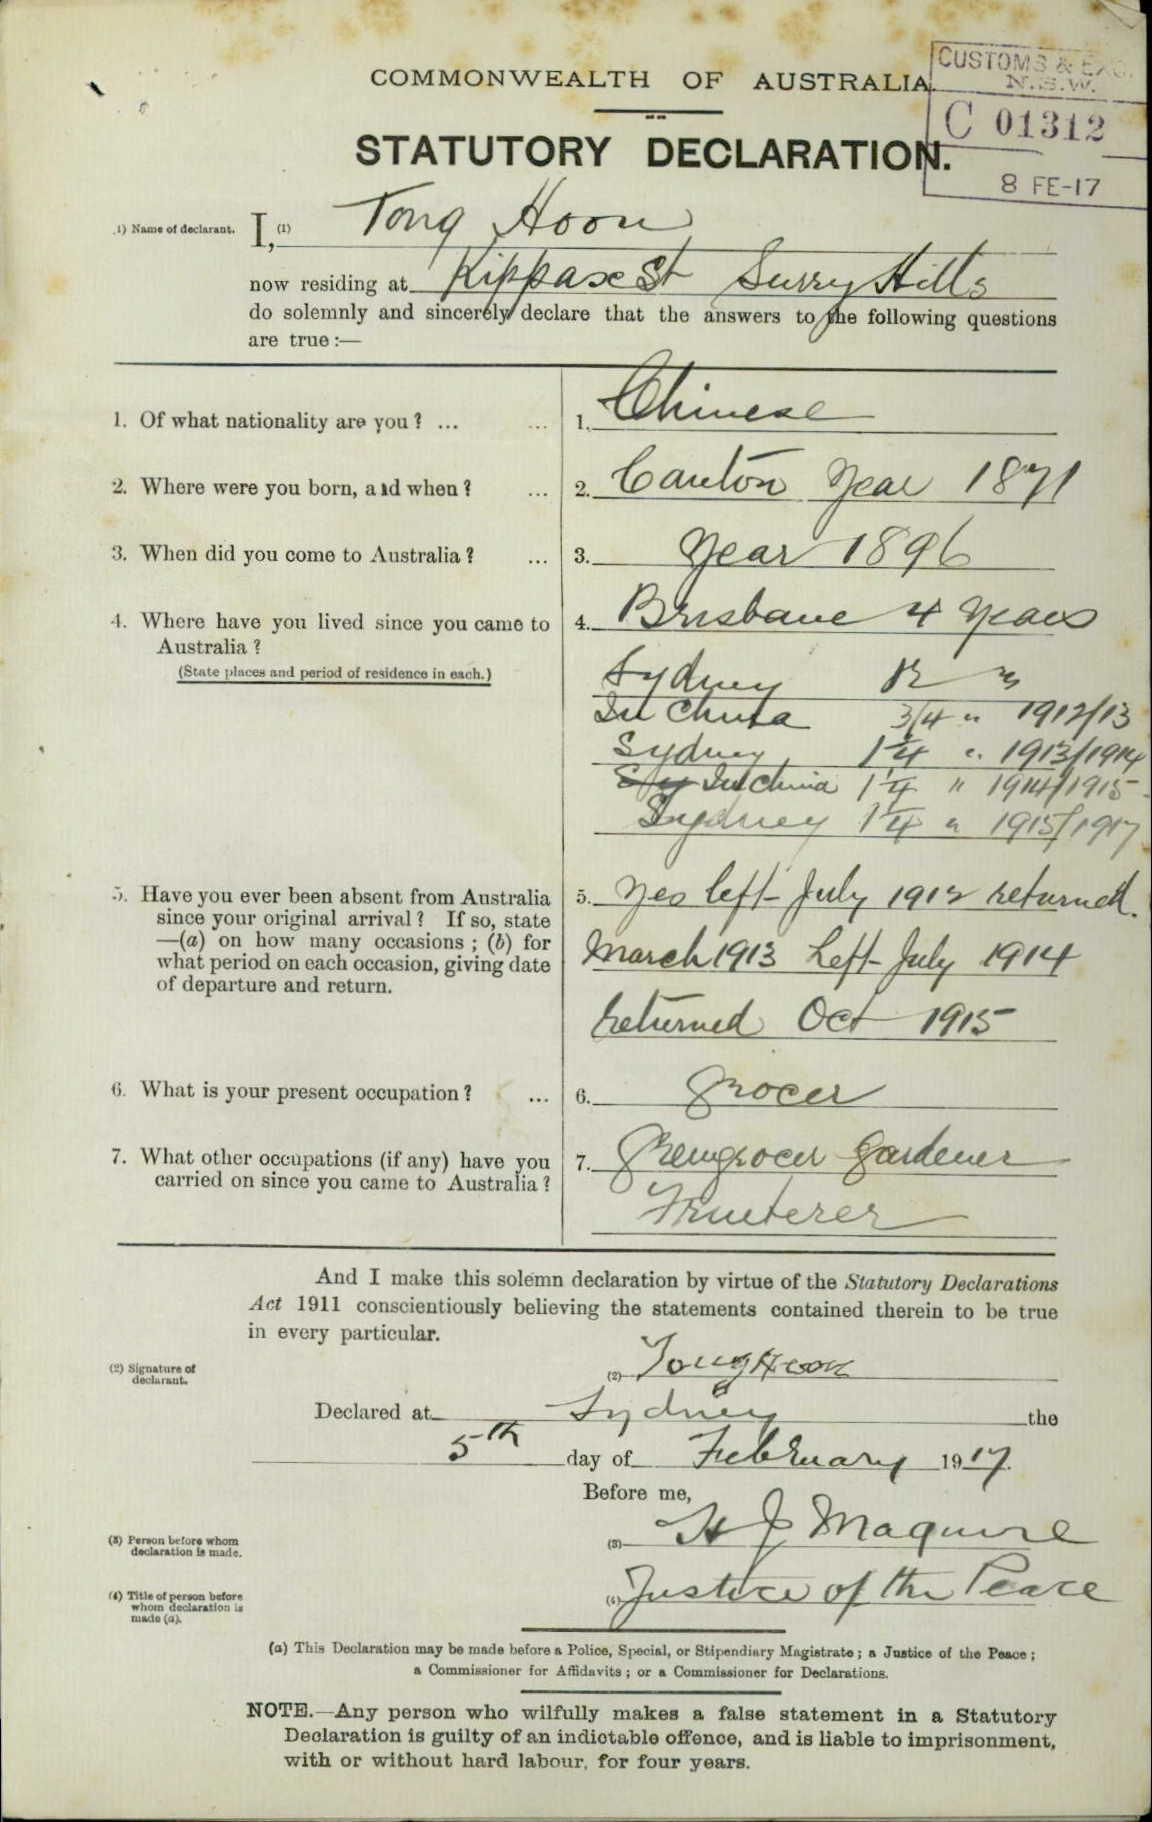 CUSTOMS & EXC.
N.S.W.
C 01312
8 FE-17
COMMONWEALTH OF AUSTRALIA.
STATUTORY DECLARATION.
(1) Name of declarant. I, (1) Tong Hoon
now residing at Kippax St Surry Hills
do solemnly and sincerely declare that the answers to the following questions
are true :—
1. Of what nationality are you ? ... ... 1. Chinese
2. Where were you born, and when ? ... 2. Canton Year 1871
3. When did you come to Australia ? ... 3. Year 1896
4. Where have you lived since you came to 4. Brisbane 4 Years
Australia ?
(State places and period of residence in each.)
Sydney 12 "
In China 3/4 " 1912/13
Sydney 1 1/4 " 1913/1914
Sy In China 1 1/4 " 1914/1915
Sydney 1 1/4 " 1915/1917
5. Have you ever been absent from Australia 5. Yes left July 1912 returned.
since your original arrival ? If so, state
—(a) on how many occasions ; (b) for March 1913 Left July 1914
what period on each occasion, giving date
of departure and return.
Returned Oct 1915
6. What is your present occupation ? ... 6. Grocer
7. What other occupations (if any) have you 7. Greengrocer Gardener
carried on since you came to Australia ?
Fruiterer
And I make this solemn declaration by virtue of the Statutory Declarations
Act 1911 conscientiously believing the statements contained therein to be true
in every particular.
(2) Signature of
declarant.
(2) Tong Hoon
Declared at Sydney the
5th day of February 1917.
Before me,
(3) Person before whom
declaration is made.
(3) H J Maguire
(4) Title of person before
whom declaration is
made (a).
(4) Justice of the Peace
(a) This Declaration may be made before a Police, Special, or Stipendiary Magistrate ; a Justice of the Peace ;
a Commissioner for Affidavits ; or a Commissioner for Declarations.
NOTE.—Any person who wilfully makes a false statement in a Statutory
Declaration is guilty of an indictable offence, and is liable to imprisonment,
with or without hard labour, for four years.